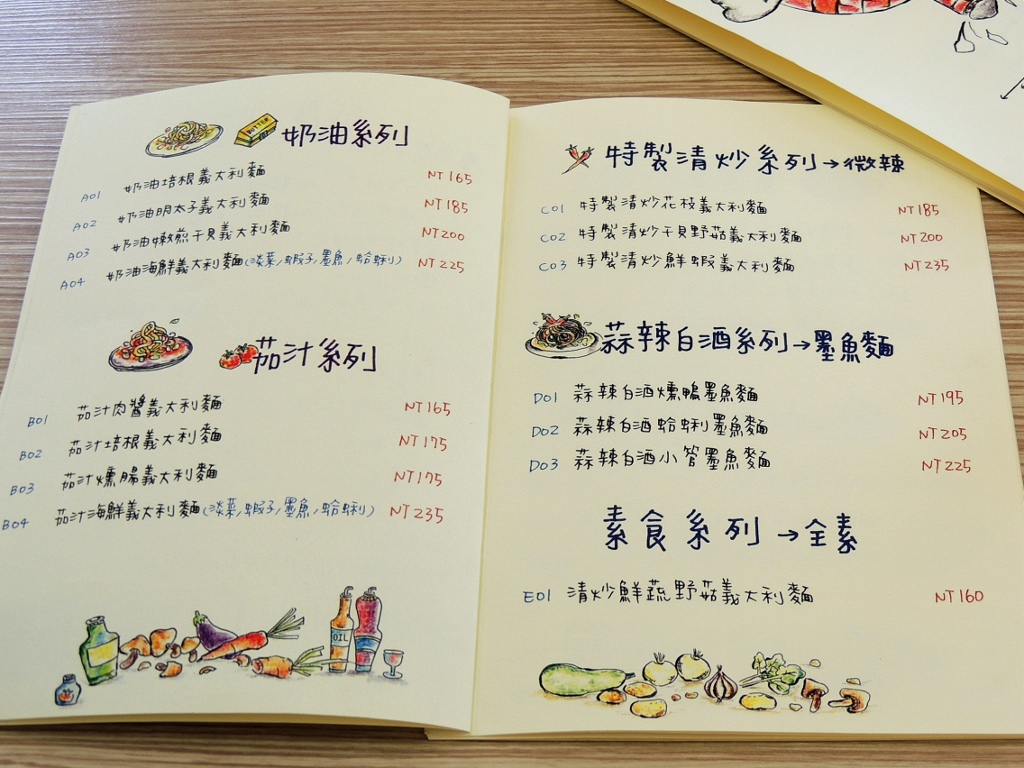 BUTTER
奶油系列
A01 奶油培根義大利麵 NT 165
A02 奶油明太子義大利麵 NT 185
A03 奶油嫩煎干貝義大利麵 NT 200
A04 奶油海鮮義大利麵(淡菜/蝦子/墨魚/蛤蜊) NT 225
茄汁系列
B01 茄汁肉醬義大利麵 NT 165
B02 茄汁培根義大利麵 NT 175
B03 茄汁燻腸義大利麵 NT 175
B04 茄汁海鮮義大利麵(淡菜/蝦子/墨魚/蛤蜊) NT 235
OIL
特製清炒系列→微辣
C01 特製清炒花枝義大利麵 NT 185
C02 特製清炒干貝野菇義大利麵 NT 200
C03 特製清炒鮮蝦義大利麵 NT 235
蒜辣白酒系列→墨魚麵
D01 蒜辣白酒燻鴨墨魚麵 NT 195
D02 蒜辣白酒蛤蜊墨魚麵 NT 205
D03 蒜辣白酒小管墨魚麵 NT 225
素食系列→全素
E01 清炒鮮蔬野菇義大利麵 NT 160